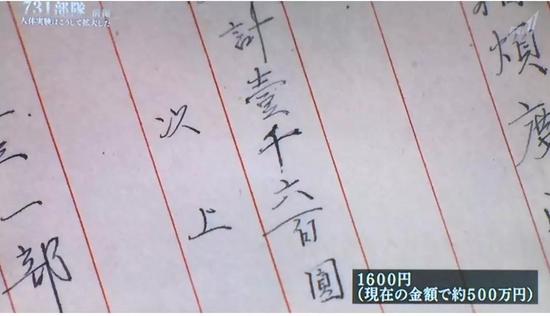 731部隊 前編
人体実験はこうして拡大した
計壹千六百圓
以上
一部
1600円
(現在の金額で約500万円)